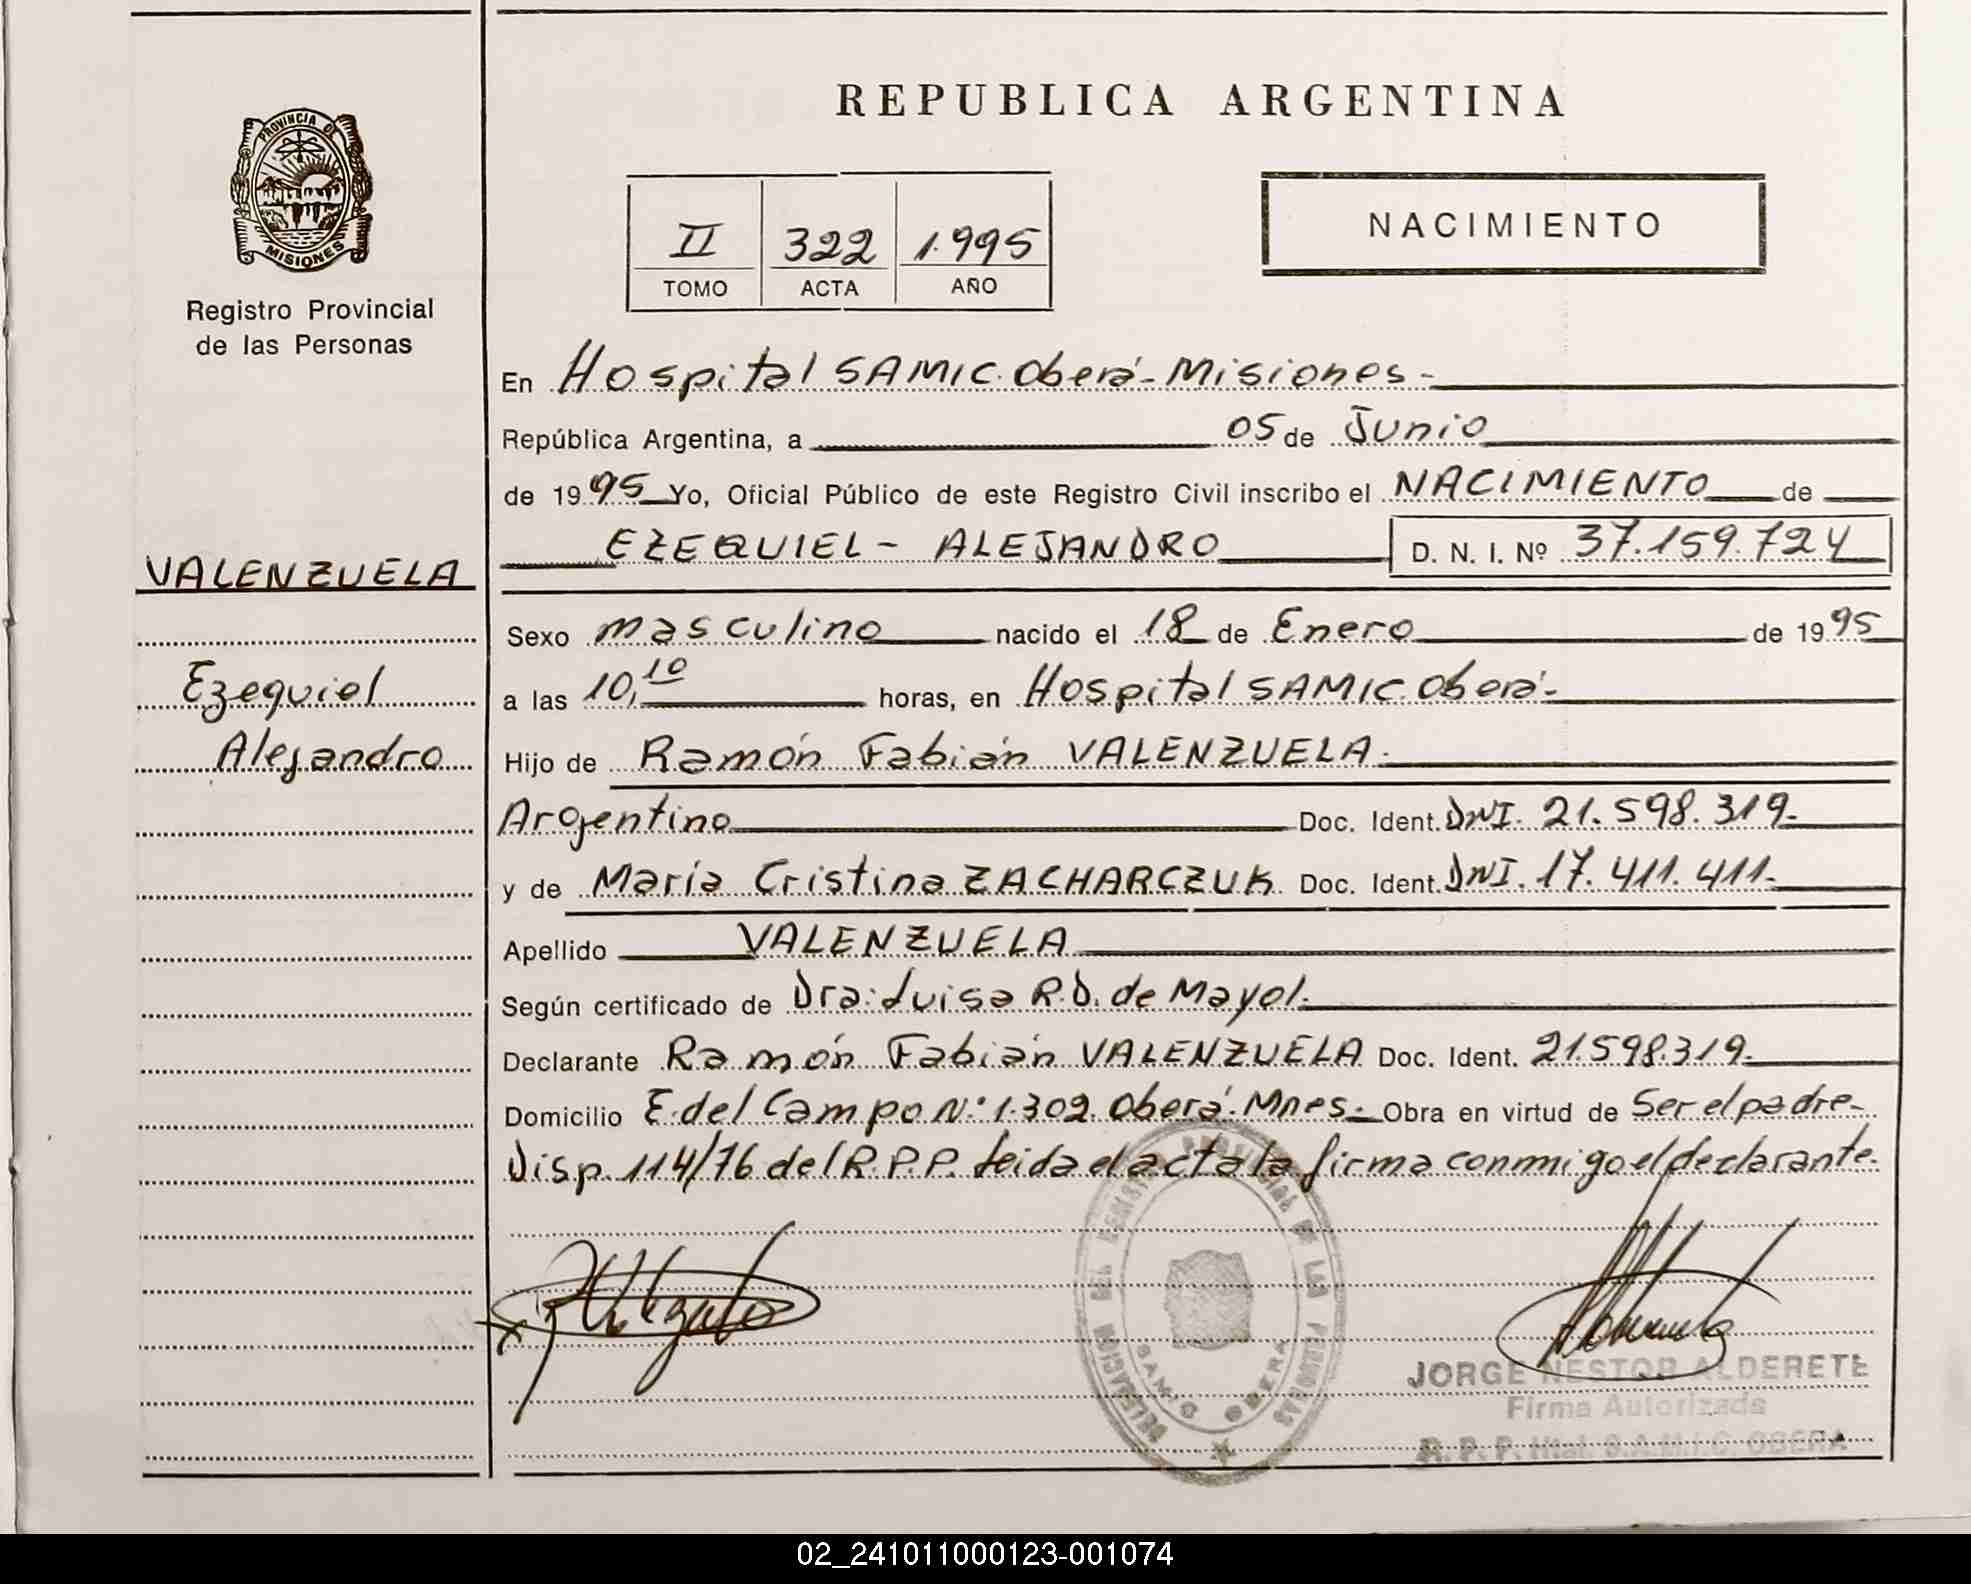 REPUBLICA ARGENTINA
PROVINCIA DE
MISIONES
Registro Provincial
de las Personas
II 322 1.995
TOMO ACTA AÑO
NACIMIENTO
En Hospital SAMIC. Oberá - Misiones -
República Argentina, a 05 de Junio
de 1995 Yo, Oficial Público de este Registro Civil inscribo el NACIMIENTO de
VALENZUELA
EZEQUIEL - ALEJANDRO D. N. I. Nº 37.159.724
Sexo masculino nacido el 18 de Enero de 1995
Ezequiel
a las 10,10 horas, en Hospital SAMIC. Oberá -
Alejandro
Hijo de Ramón Fabián VALENZUELA.
Argentino Doc. Ident. DNI. 21.598.319-
y de María Cristina ZACHARCZUK Doc. Ident. DNI. 17.411.411-
Apellido VALENZUELA
Según certificado de Dra: Luisa R.D. de Mayol.
Declarante Ramón Fabián VALENZUELA Doc. Ident. 21.598.319-
Domicilio E. del Campo N° 1.302. Oberá. Mnes. Obra en virtud de Ser el padre-
Disp. 114/76 del R.P.P. Leida el acta la firma conmigo el declarante.
DELEGACION DEL REGISTRO PROVINCIAL DE LAS PERSONAS
SAMIC OBERA
JORGE NESTOR ALDERETE
Firma Autorizada
R. P. P. Htal. S.A.M.I.C. OBERA
02_241011000123-001074